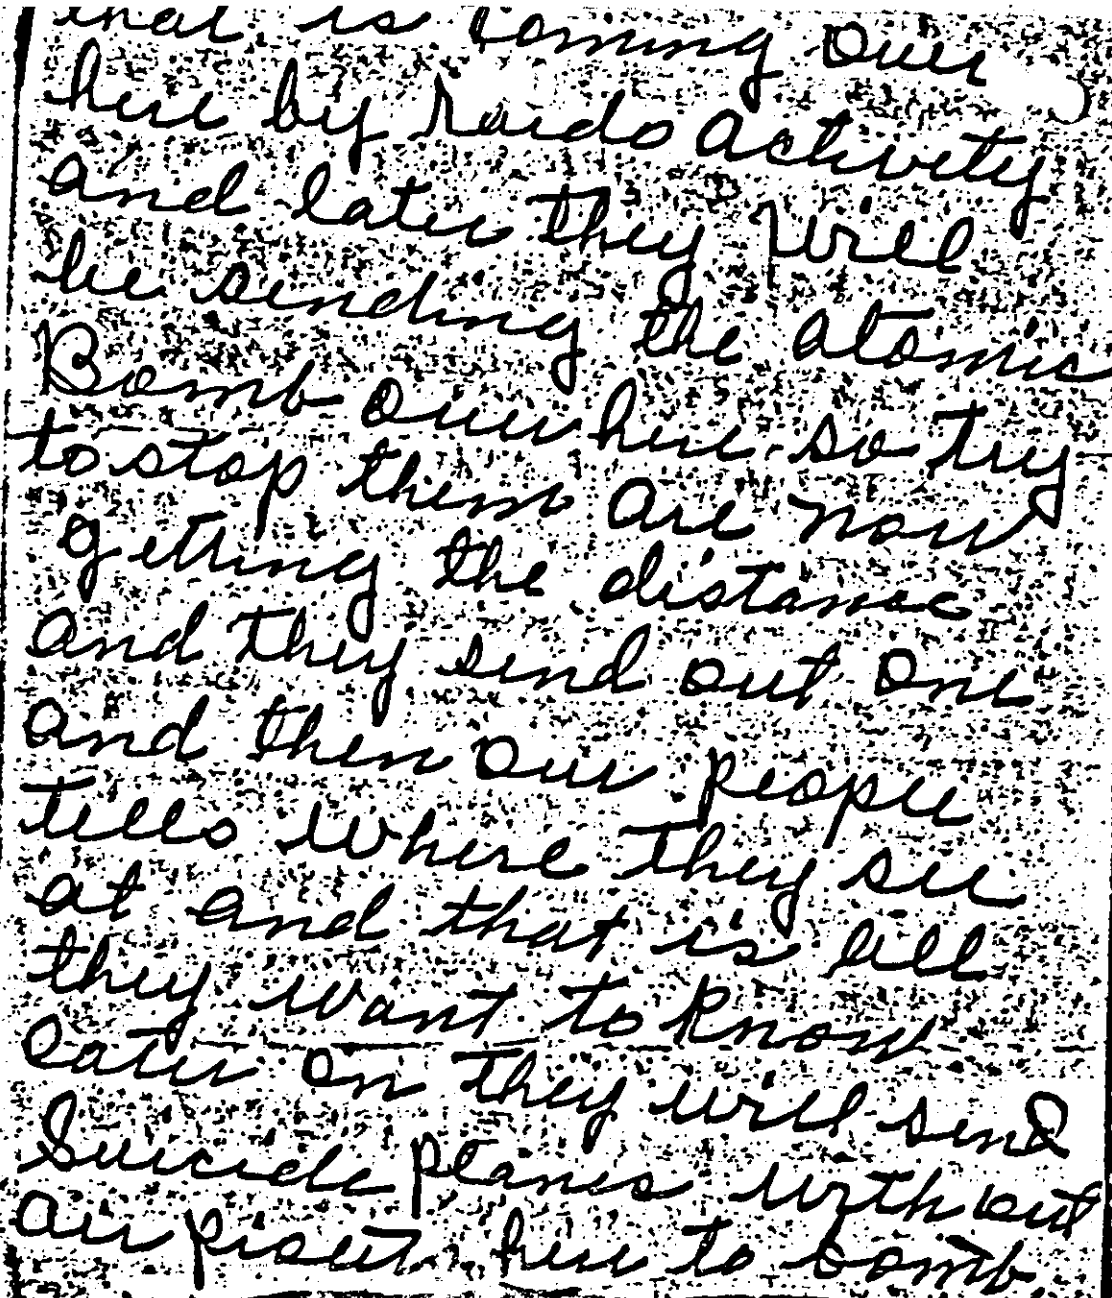 that is coming over
here by Raido activity
and later they will
be sending the atomic
Bomb over here. so try
to stop them are now
getting the distance
and they send out one
and then our people
tells where they see
at and that is all
they want to know
Later on they will send
Suicide planes without
air pisout here to bomb